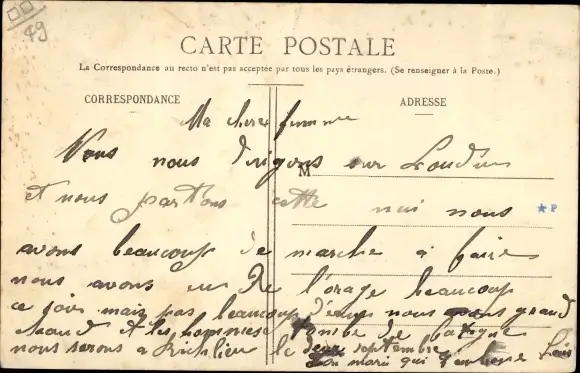 49
CARTE POSTALE
La Correspondance au recto n'est pas acceptée par tous les pays étrangers. (Se renseigner à la Poste.)
CORRESPONDANCE
ADRESSE
Ma chere femme
Nous nous dirigons sur Loudun
M
et nous partons cette nui nous
★P
avons beaucoup de marche a faire
nous avons eu de l'orage beaucoup
ce soir mais pas beaucoup d'eau nous avons grand
chaud et les hommes tombe de fatigue
nous serons a Richlieu le deux septembre
Ton marie qui Louis